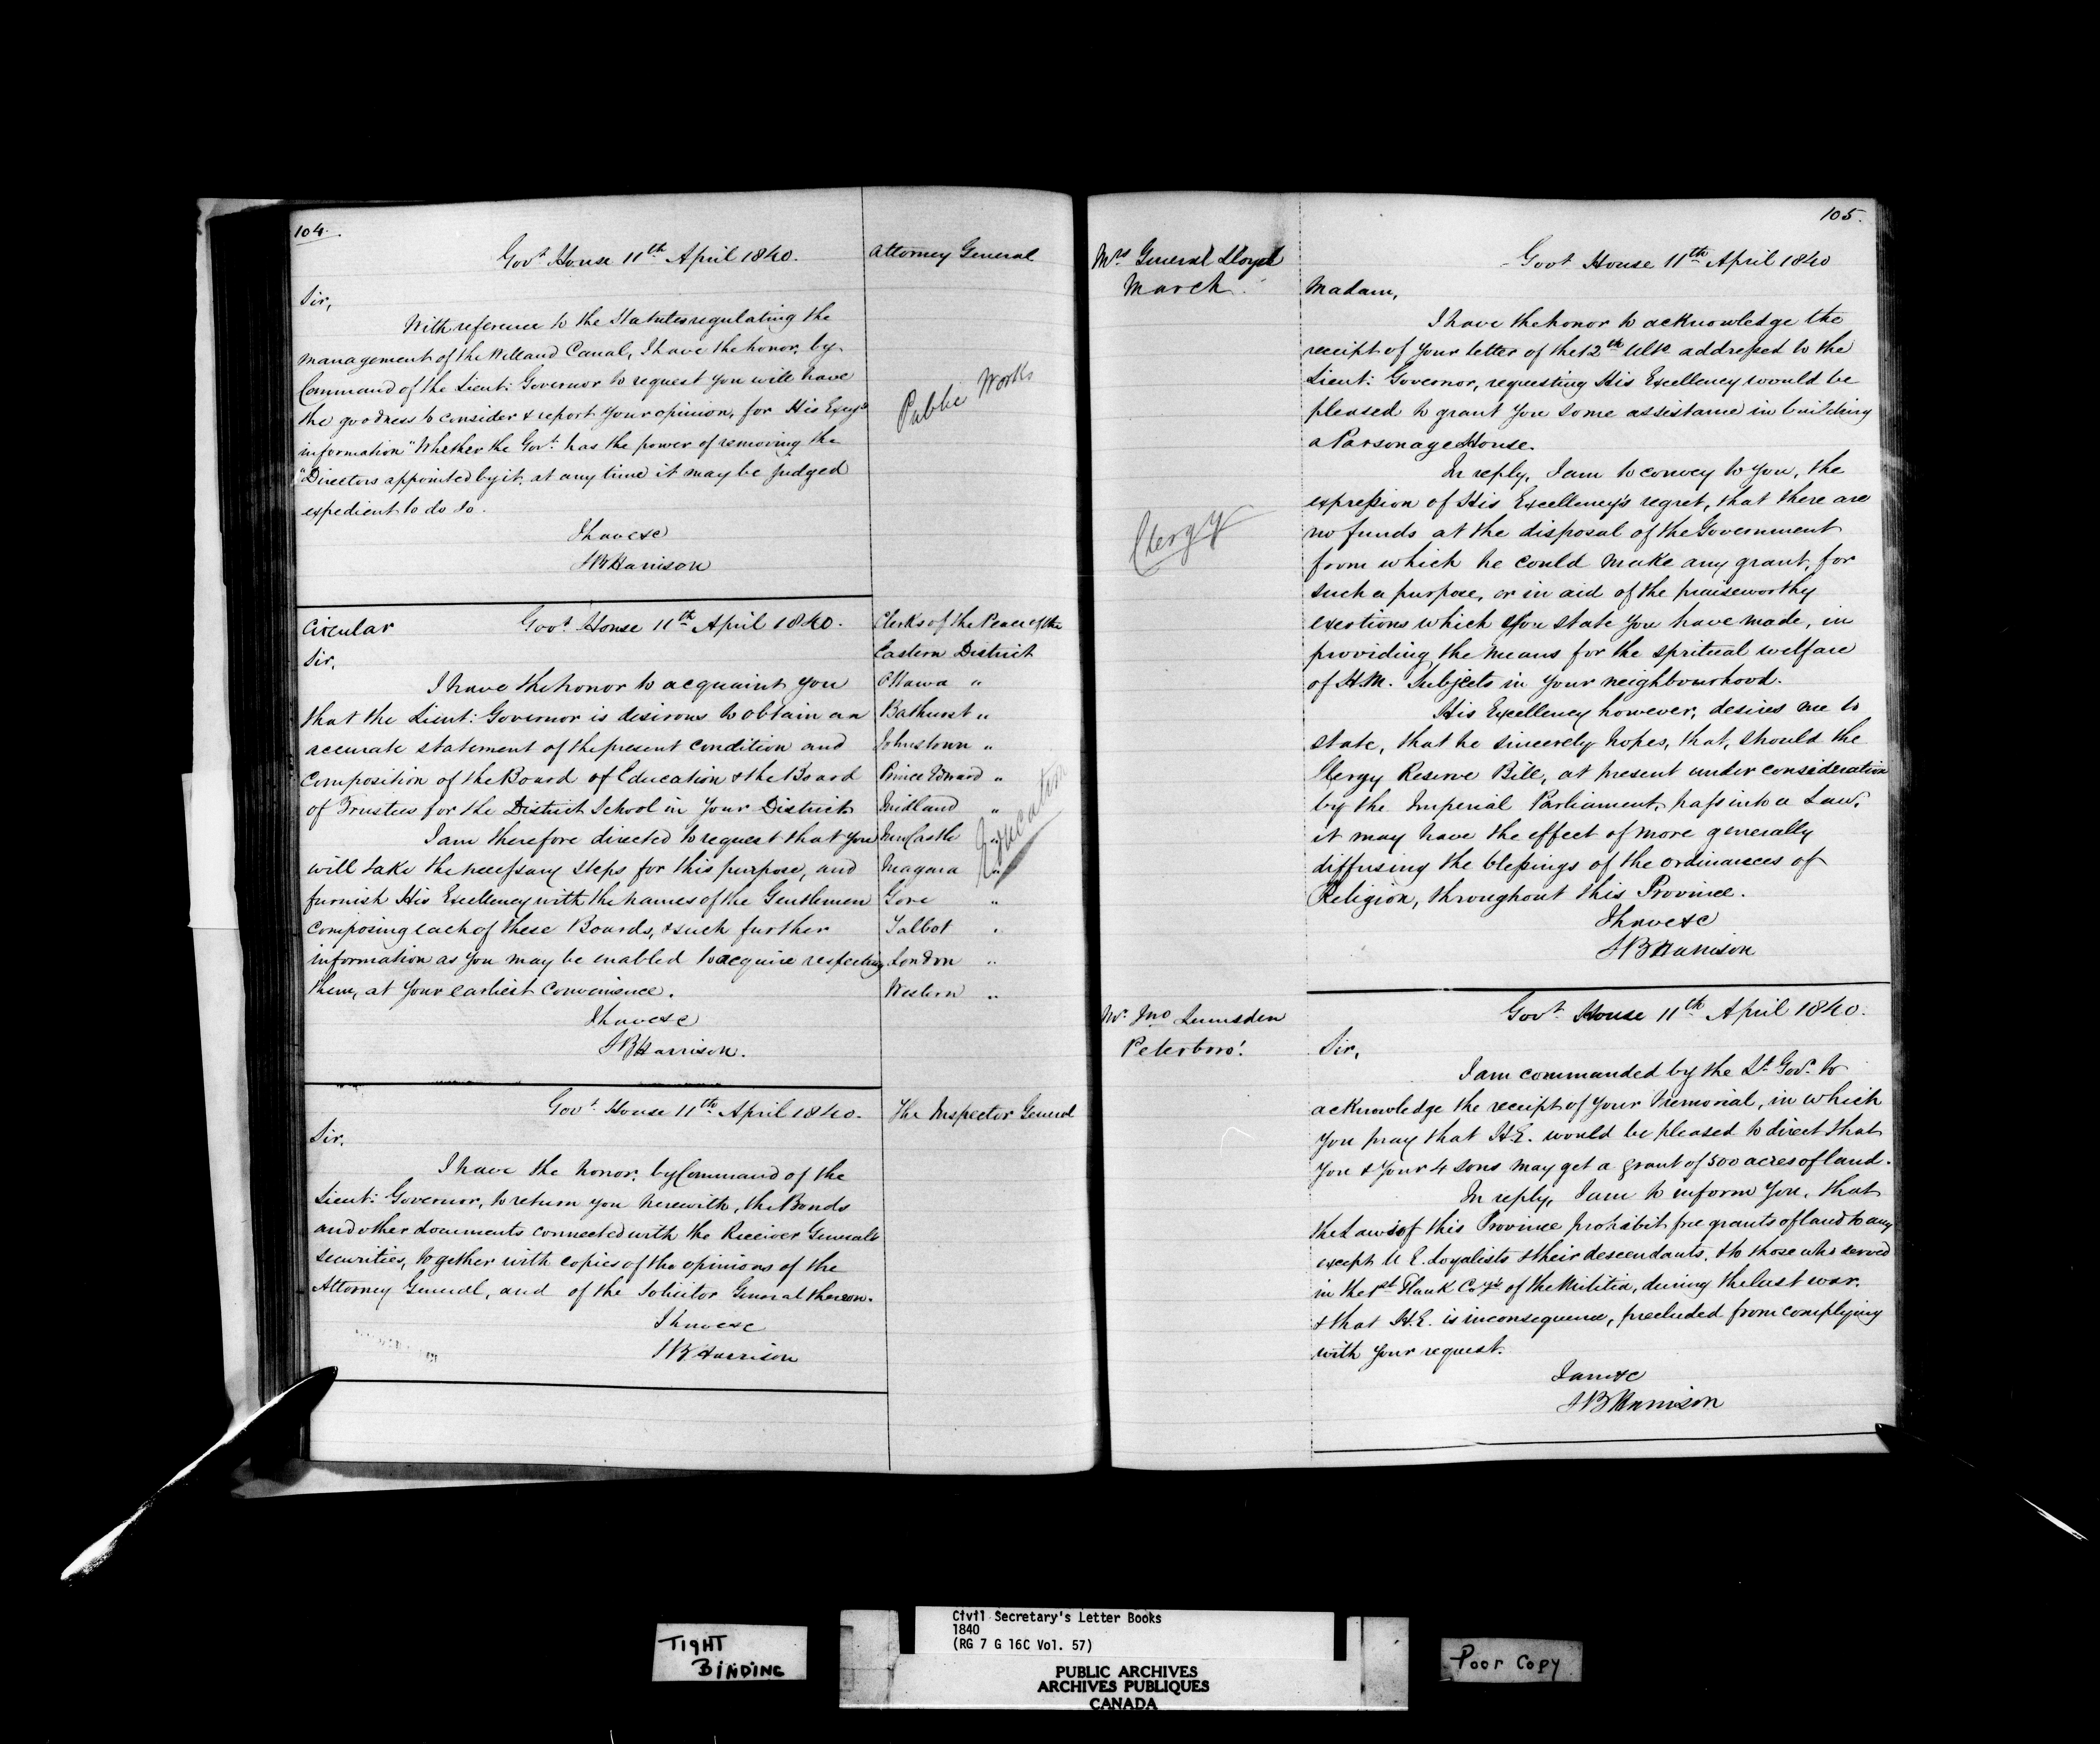 104.
Govt. House 11th April 1840.
Attorney General
Sir,
With reference to the Statutes regulating the
management of the Welland Canal, I have the honor, by
Command of the Lieut: Governor to request you will have
the goodness to consider & report your opinion, for His Excy's
information "Whether the Govt. has the power of removing the
"Directors appointed by it, at any time it may be judged
expedient to do so.
Public Works
I have &c
S B Harrison
Circular
Govt. House 11th April 1840.
Sir,
I have the honor to acquaint you
that the Lieut: Governor is desirous to obtain an
accurate statement of the present condition and
Composition of the Board of Education & the Board
of Trustees for the District School in your District
I am therefore directed to request that you
will take the necessary steps for this purpose, and
furnish His Excellency with the names of the Gentlemen
Composing each of these Boards, & such further
information as you may be enabled to acquire respecting
them, at your earliest convenience.
I have &c
S B Harrison.
Clerks of the Peace of the
Eastern District
Ottawa "
Bathurst "
Johnstown "
Prince Edward "
Midland "
NewCastle "
Niagara "
Gore "
Talbot "
London "
Western "
Education
Govt. House 11th April 1840.
The Inspector General
Sir,
I have the honor, by Command of the
Lieut: Governor, to return you herewith, the Bonds
and other documents connected with the Receiver Generals
securities, together with copies of the opinions of the
Attorney General, and of the Solicitor General thereon.
I have &c
S B Harrison
105.
Mrs General Lloyd
March.
Govt House 11th April 1840
Madam,
I have the honor to acknowledge the
receipt of your letter of the 12th Ulto addressed to the
Lieut: Governor, requesting His Excellency would be
pleased to grant you some assistance in building
a Parsonage House.
In reply, I am to convey to you, the
expression of His Excellency's regret, that there are
no funds at the disposal of the Government
from which he could make any grant, for
such a purpose, or in aid of the praiseworthy
exertions which you state you have made, in
providing the means for the spritual welfare
of H.M. Subjects in your neighbourhood.
Clergy
His Excellency however, desires me to
state, that he sincerely hopes, that, should the
Clergy Reserve Bill, at present under consideration
by the Imperial Parliament, pass into a Law,
it may have the effect of more generally
diffusing the blessings of the ordinances of
Religion, throughout this Province.
I have &c
S B Harrison
Mr. Jno Lumsden
Peterboro'.
Govt. House 11th April 1840.
Sir,
I am commanded by the Lt Govr. to
acknowledge the receipt of your Memorial, in which
you pray that H.E. would be pleased to direct that
you & your 4 sons may get a grant of 500 acres of land.
In reply, I am to inform you, that
the Laws of this Province prohibit free grants of land to any
except U E. Loyalists & their descendants, & to those who served
in the 1st Flank Coys of the Militia, during the last war.
& that H.E. is in consequence, precluded from complying
with your request.
I am &c
S B Harrison
TIGHT
BINDING
Civil Secretary's Letter Books
1840
(RG 7 G 16C Vol. 57)
PUBLIC ARCHIVES
ARCHIVES PUBLIQUES
CANADA
Poor Copy